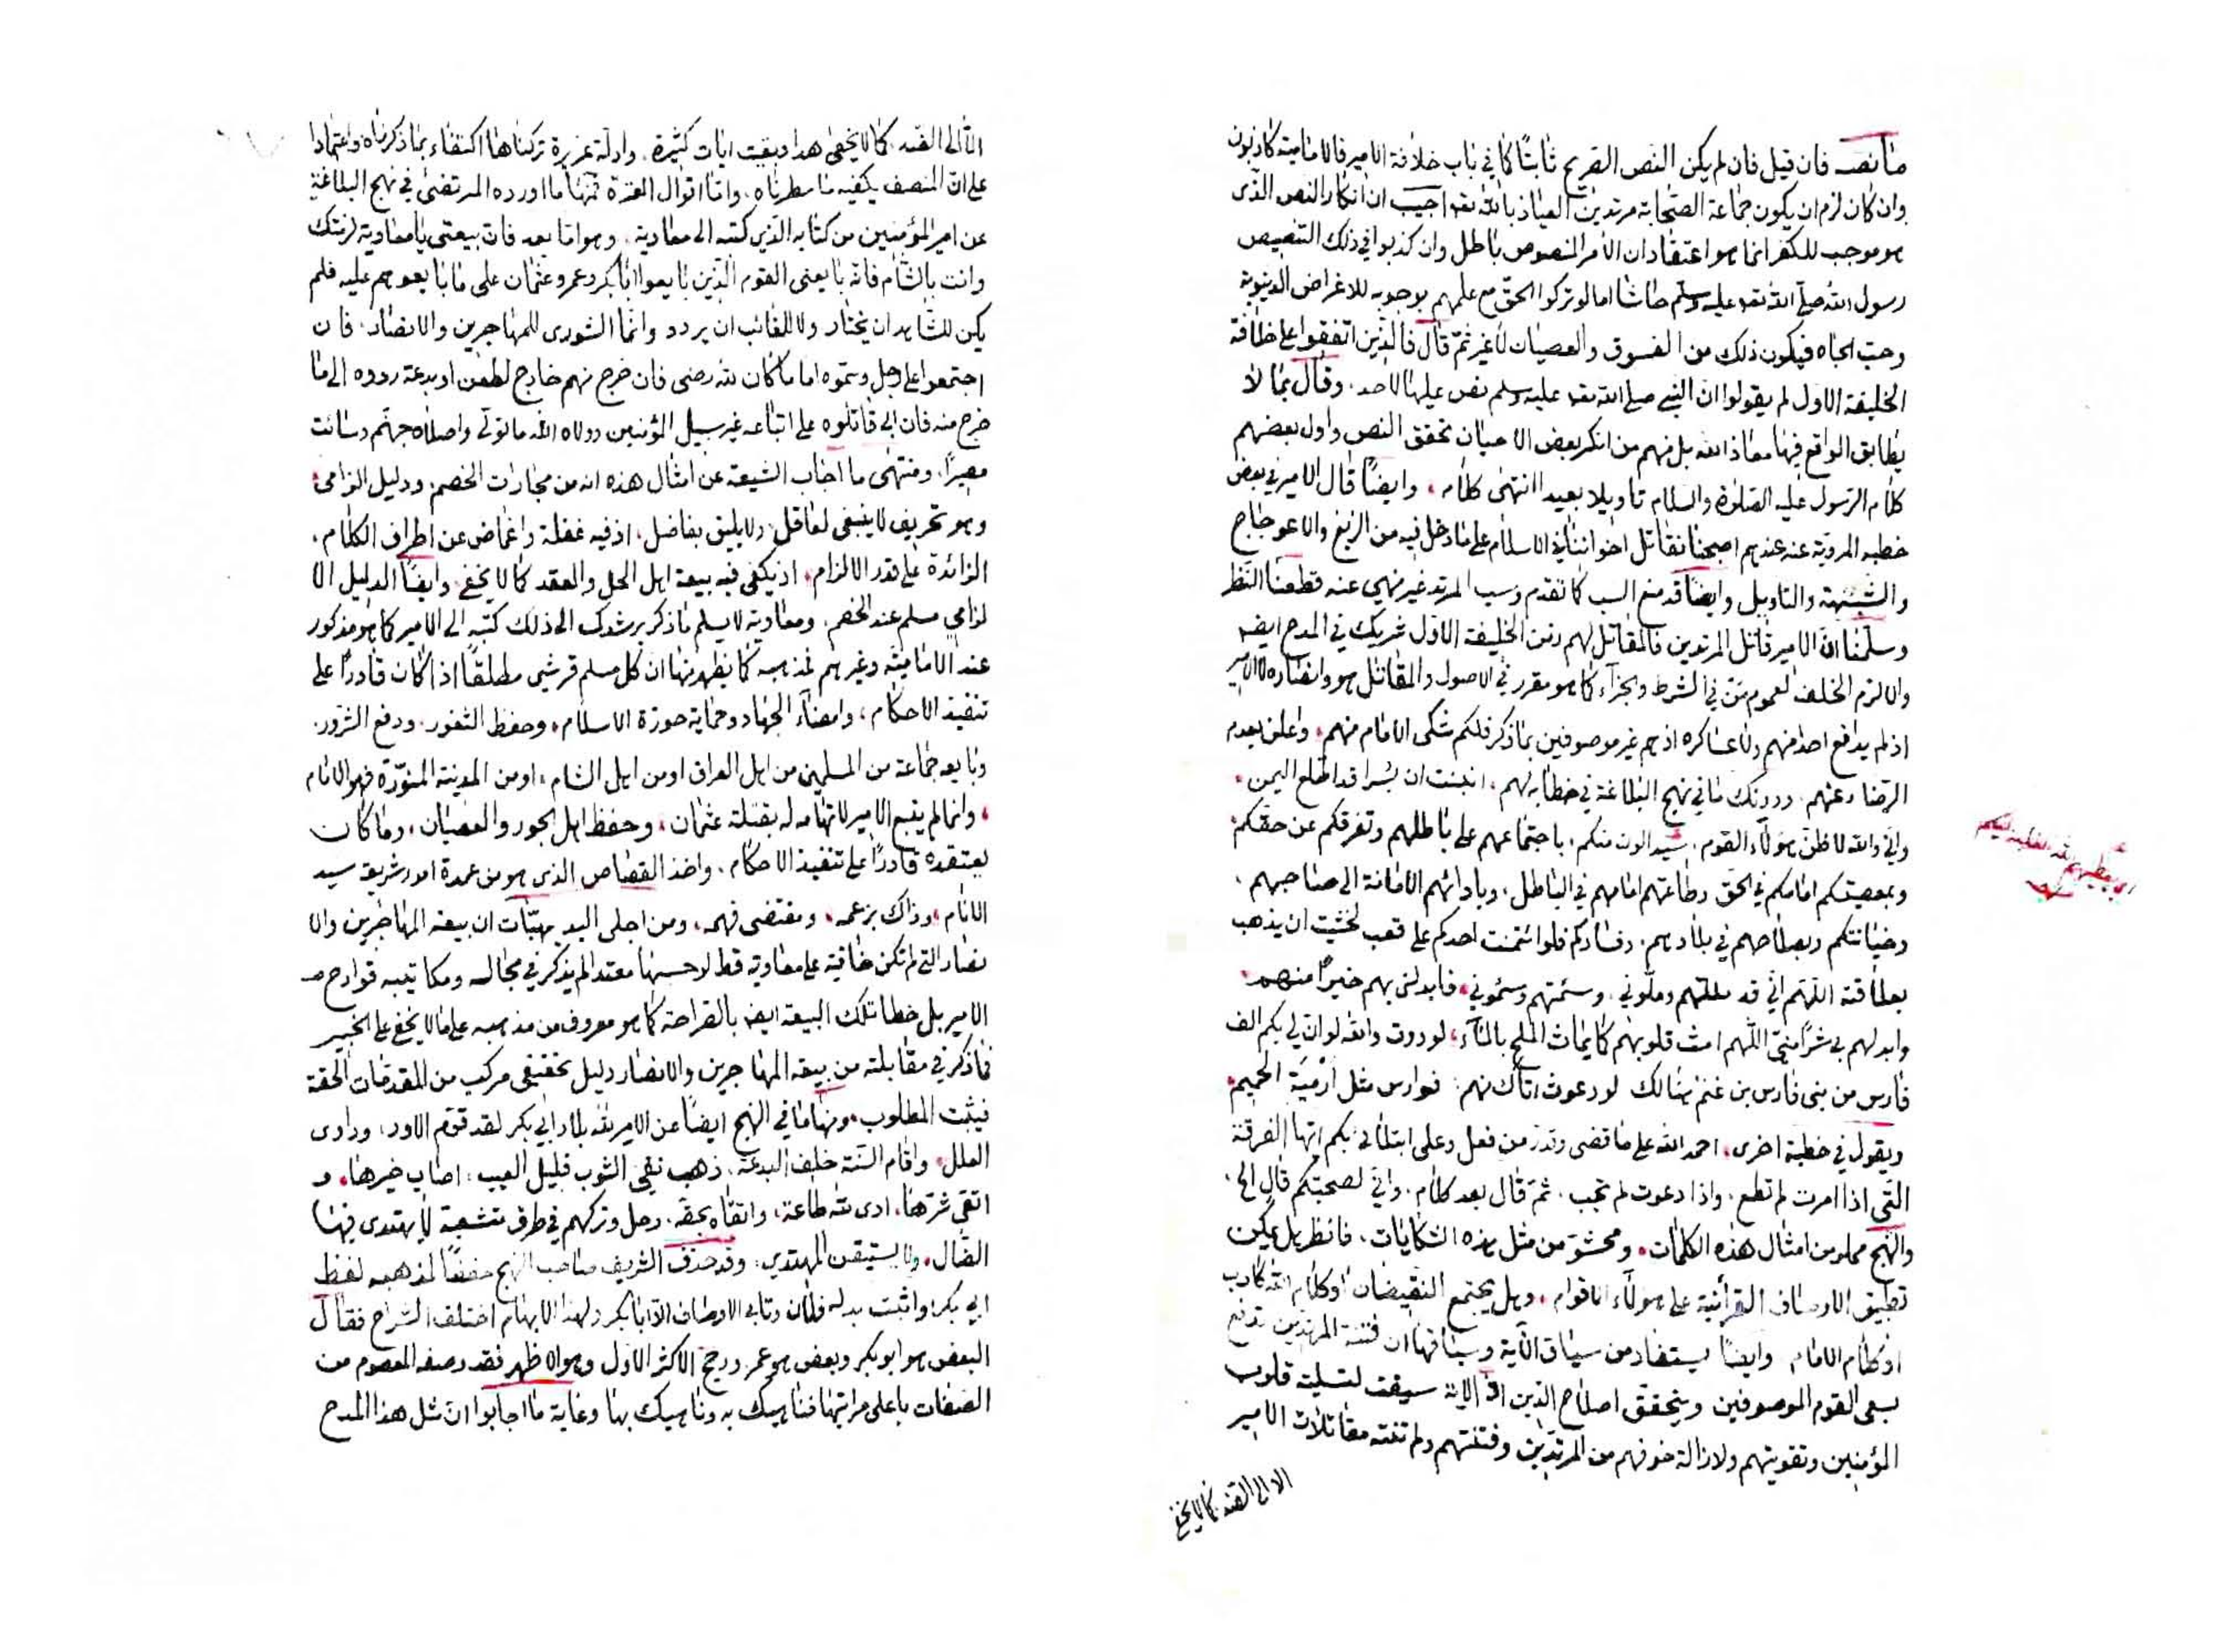 ما نصه فان قيل فان لم يكن النص الصريح ثابتًا كما في باب خلافة الامير فالامامية كاذبون
وان كان لزم ان يكون جماعة الصحابة مرتدين العياذ بالله تعه اجيب ان انكار النص الذى
هو موجب للكفر انما هو اعتقاد ان الأمر المنصوص باطل وان كذبوا في ذلك التنصيص
رسول الله صلى الله تعه عليه وسلم حاشا اما لو تركوا الحق مع علمهم بوجوبه للاغراض الدنيوية
وحب الجاه فيكون ذلك من الفسوق والعصيان لا غير ثم قال فالذين اتفقوا على خلافة
الخليفة الاول لم يقولوا ان النبي صلى الله تعه عليه وسلم نص عليها لاحد. وقال بما لا
يطابق الواقع فيها معاذ الله بل منهم من انكر بعض الاحيان تحقق النص واول بعضهم
كلام الرسول عليه الصلوة والسلام تأويلا بعيدا انتهى كلامه وايضًا قال الامير في بعض
خطبه المروية عنه عندهم اصبحنا نقاتل اخواننا في الاسلام على ما دخل فيه من الزيغ والاعوجاج
والشبهة والتأويل وايضًا قد منع السب كما تقدم وسب المرتد غير منهي عنه قطعنا النظر
وسلمنا انّ الامير قاتل المرتدين فالمقاتل لهم زمن الخليفة الاول شريك في المدح ايضه
والا لزم الخلف لعموم من في الشرط والجزاء كما هو مقرر في الاصول والمقاتل هو وانصاره لا الامير
اذ لم يدافع احدا منهم ولا عساكره اذ هم غير موصوفين بما ذكر فلكم شكى الامام منهم، واعلن بعدم
الرضا عنهم. ودونك ما في نهج البلاغة في خطابه لهم، انبئت ان بُسرا قد اطلع اليمن.
واني والله لا ظن هؤلاء القوم. سيدالون منكم. باجتماعهم على باطلهم وتفرقكم عن حقكم.
وبمعصيتكم امامكم في الحق وطاعتهم امامهم في الباطل، وبادائهم الامانة الى صاحبهم.
وخيانتكم وبصلاحهم في بلادهم. وفسادكم فلو ائتمنت احدكم على قعب لخشيت ان يذهب
بعلاقته اللهم اني قد مللتهم وملّوني. وسئمتهم وسئموني، فابدلني بهم خيرًا منهم
وابدلهم بي شرًا منيّ اللهم امث قلوبهم كما يماث الملح بالماء، لوددت والله لو ان لي بكم الف
فارس من بنى فارس بن غنم هنالك لو دعوت اتاك منهم: فوارس مثل ارمية الحميم.
ويقول في خطبة اخرى، احمد الله على ما قضى وقدر من فعل وعلى ابتلائى بكم ايها الفرقة
التي اذا امرت لم تطع، واذا دعوت لم تجب. ثمّ قال بعد كلام. واني لصحبتكم قال الخ.
والنهج مملو من امثال هذه الكلمات، ومحشوّ من مثل هذه الشكايات. فانظر هل يمكن
تطبيق الاوصاف القرآنية على هؤلاء الاقوام، وهل يجتمع النقيضان او كلام الله كاذب
او كلام الامام. وايضًا يستفاد من سياق الآية وسباقها ان فتنة المرتدين تدفع
بسعى القوم الموصوفين ويتحقق اصلاح الذين اذ الاية سيقت لتسلية قلوب
المؤمنين وتقويتهم ولازالة خوفهم من المرتدين وفتنتهم ولم تنته مقاتلات الامير
الا الى الضد كما لا يخفى
الّا الى الضد، كما لا يخفى هذا وبقيت ايات كثيرة. وادلة غزيرة تركناها اكتفاء بما ذكرناه واعتمادا
على انّ المنصف يكفيه ما سطرناه. وامّا اقوال العترة فمنها ما اورده المرتضى في نهج البلاغة
عن امير المؤمنين من كتابه الذي كتبه الى معاوية، وهو اما بعد فان بيعتى يا معاوية لزمتك
وانت بالشام فانّه بايعنى القوم الّذين بايعوا ابا بكر وعمر وعثمان على ما بايعوهم عليه فلم
يكن للشاهد ان يختار ولا للغائب ان يردد وانما الشورى للمهاجرين والانصار. فان
اجتمعوا على رجل وسموه اماما كان لله رضى فان خرج منهم خارج لطعن او بدعة ردوه الى ما
خرج منه فان ابى قاتلوه على اتباعه غير سبيل المؤمنين وولاه الله ما تولّى واصلاه جهنّم وسائت
مصيرًا. ومنتهى ما اجاب الشيعة عن امثال هذه انه من مجارات الخصم ودليل الزامي،
وهو تحريف لا ينبغى لعاقل ولا يليق بفاضل، اذ فيه غفلة واغماض عن اطراف الكلام.
الزائدة على قدر الالزام، اذ يكفى فيه بيعة اهل الحل والعقد كما لا يخفى، وايضًا الدليل الا
لزامي مسلم عند الخصم. ومعاوية لا يسلم ما ذكر يرشدك الى ذلك كتبه الى الامير كما هو مذكور
عند الامامية وغيرهم فمذهبه كما يظهر منها ان كل مسلم قرشي مطلقًا اذا كان قادرًا على
تنفيذ الاحكام، وامضاء الجهاد وحماية حوزة الاسلام، وحفظ الثغور. ودفع الشرور.
وبايعه جماعة من المسلمين من اهل العراق او من اهل الشام، او من المدينة المنوّرة فهو الامام
، وانما لم يتبع الامير لاتهامه له بقتلة عثمان، وحفظ اهل الجور والعصيان، وما كان
يعتقده قادرًا على تنفيذ الاحكام. واخذ القصاص الذي هو من عمدة امور شريعة سيد
الانام، وذاك بزعمه، ومقتضى فهمه، ومن اجلى البديهيّات ان بيعة المهاجرين والا
نصار التي لم تكن خافية على معاوية قط لو حسبها معتد لم يذكر في مجالسه ومكاتيبه قوادح
الامير بل خطا تلك البيعة ايضه بالصراحة كما هو معروف من مذهبه على ما لا يخفى على الخبير
فما ذكر في مقابلته من بيعة المهاجرين والانصار دليل تحقيقى مركب من المقدمات الحقة
فيثبت المطلوب، ومنها ما في النهج ايضًا عن الامير لله بلاد ابي بكر لقد قوّم الاود، وداوى
العلل، واقام السنة خلف البدعة، ذهب نقى الثوب قليل العيب، اصاب خيرها، و
اتقى شرّها، ادى لله طاعة، واتقاه بحقه. رحل وتركهم في طرق متشعبة لا يهتدى فيها
الضال، ولا يستيقن المهتدي، وقد حذف الشريف صاحب النهج حفظًا لمذهبه لفظ
ابي بكر، واثبت بدله فلان وتابى الاوصاف الّا ابا بكر ولهذا الابهام اختلف الشراح فقال
البعض هو ابو بكر وبعض هو عمر ورجح الاكثر الاول وهو الاظهر فقد وصفه المعصوم من
الصفات باعلى مراتبها فناهيك به وناهيك بها وغاية ما اجابوا انّ مثل هذا المدح